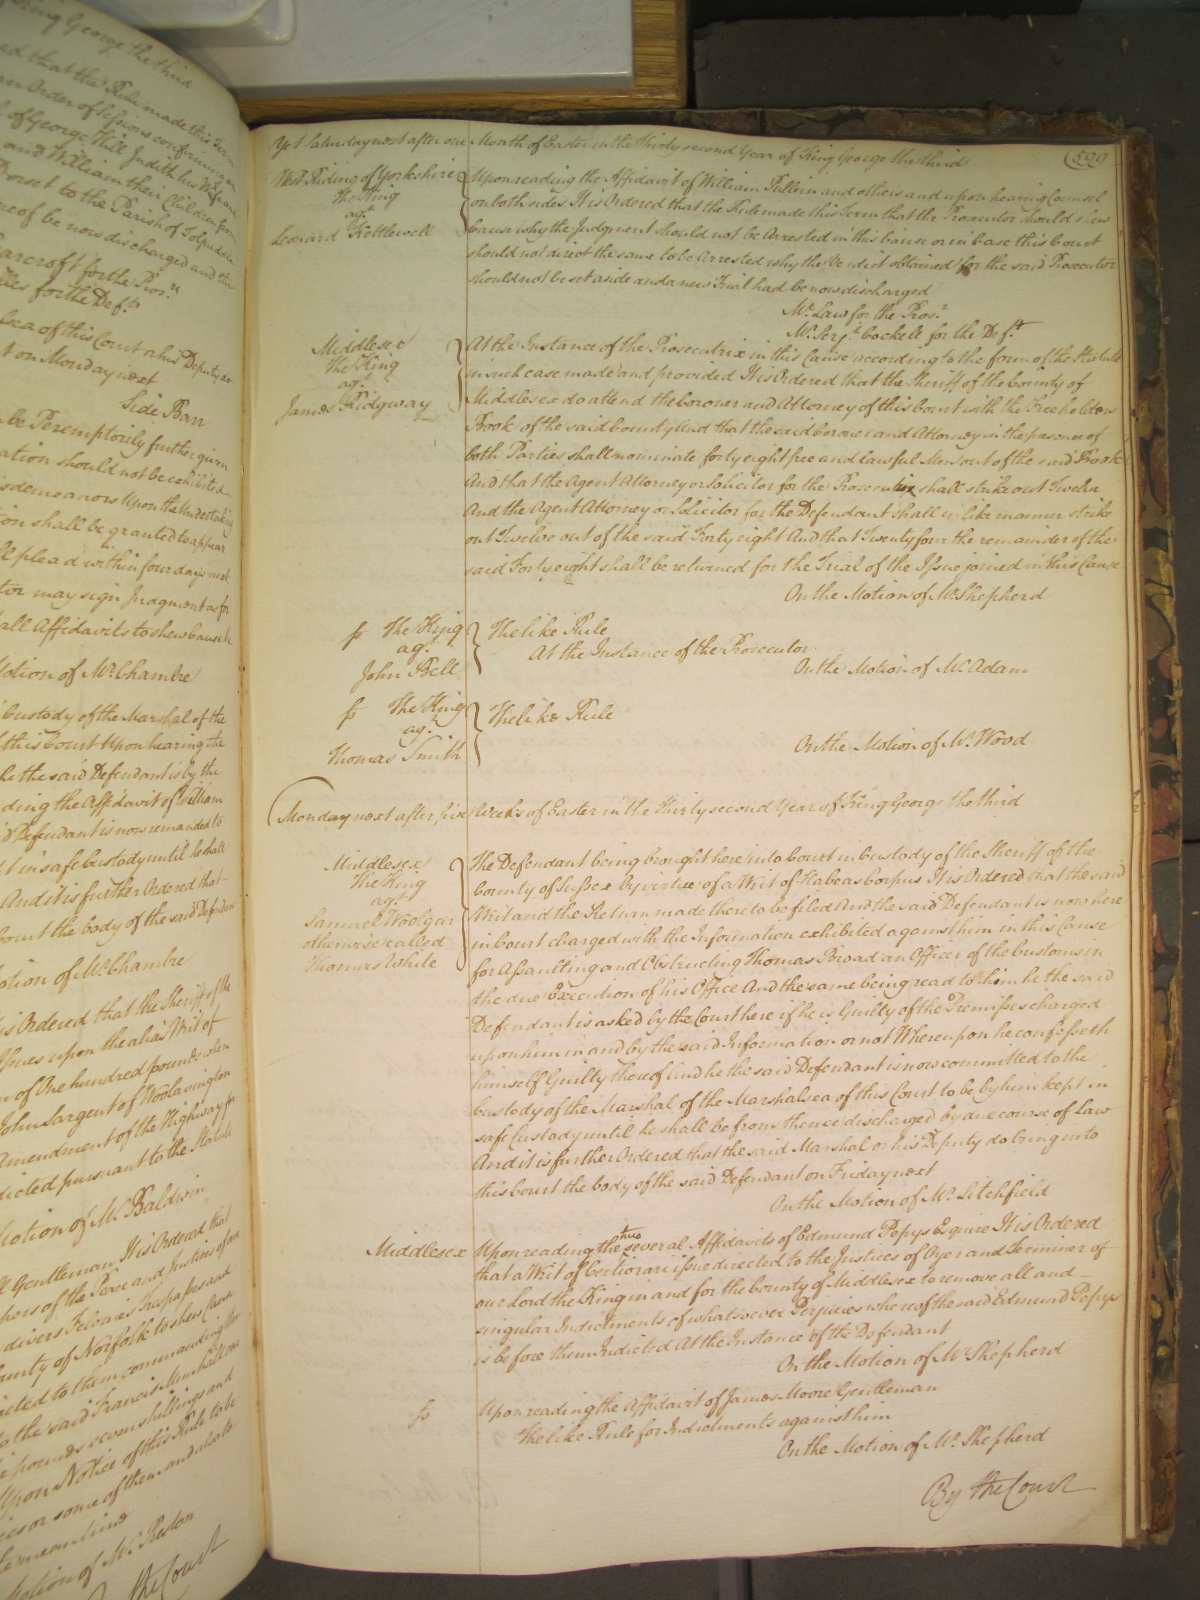 King George the third
and that the Rule made this Term
an Order of Sessions confirming an
of George Hill Judith his Wife and
and William their Children from
Dorset to the Parish of Tolpuddle
be now discharged and the
Barcroft for the Pros.r
for the Def.t
of this Court or his Deputy do
on Monday next
Side Barr
be Peremptorily further given
should not be exhibited
upon the undertaking
shall be granted to appear
plead within four days next
may sign Judgment as for
all Affidavits to shew cause
Motion of Mr. Chambre
Custody of the Marshal of the
this Court Upon hearing the
he the said Defendant is by the
the Affidavit of William
Defendant is now remanded to
in safe Custody until he shall
And it is further Ordered that
Court the body of the said Defendant
Motion of Mr. Chambre
is Ordered that the Sheriff of the
Issues upon the alias Writ of
of One hundred pounds when
John Sargent of Woolavington
Amendment of the Highway for
indicted pursuant to the Statute
Motion of Mr. Baldwin
Gentleman It is Ordered that
of the Peace and Justices of our
divers Felonies Trespasses and
County of Norfolk to shew Cause
directed to them commanding them
to the said Francis
pounds seven shillings and
Upon Notice of this Rule to be
or some of them and also to

Motion of Mr. Preston
By the Court
Yet Saturday next after one Month of Easter in the thirty second Year of King George the third 599
West Riding of Yorkshire
The King
ag.t
Leonard Kettlewell
Upon reading the Affidavit of William Pullein and others and upon hearing Counsel
on both sides It is Ordered that the Rule made this Term that the Prosecutor should shew
Cause why the Judgment should not be Arrested in this Cause or in Case this Court
should not direct the same to be Arrested why the Verdict obtained for the said Prosecutor
should not be set aside and a new Trial had be now discharged
Mr. Law for the Pros.r
Mr. Serj.t Cockell for the Def.t
Middlesex
The King
ag.t
James Ridgway
At the Instance of the Prosecutrix in this Cause according to the form of the Statute
in such case made and provided It is Ordered that the Sheriff of the County of
Middlesex do attend the Coroner and Attorney of this Court with the Freeholders
Book of the said County And that the said Coroner and Attorney in the presence of
both Parties shall nominate forty eight free and lawful Men out of the said Book
And that the Agent Attorney or Solicitor for the Prosecutrix shall strike out Twelve
And the Agent Attorney or Solicitor for the Defendant shall in like manner strike
out Twelve out of the said Forty eight And that Twenty four the remainder of the
said Forty eight shall be returned for the Trial of the Issue joined in this Cause
On the Motion of Mr. Shepherd
ss The King
ag.t
John Bell
The like Rule
At the Instance of the Prosecutor
On the Motion of Mr. Adam
ss The King
ag.t
Thomas Smith
The like Rule
On the Motion of Mr. Wood
Monday next after five Weeks of Easter in the Thirty second Year of King George the third
Middlesex
The King
ag.t
Samuel Woolgar
otherwise called
Thomas White
The Defendant being brought here into Court in Custody of the Sheriff of the
County of Sussex by virtue of a Writ of Habeas Corpus It is Ordered that the said
Writ and the Return made thereto be filed And the said Defendant is now here
in Court charged with the Information exhibited against him in this Cause
for Assaulting and Obstructing Thomas Broad an Officer of the Customs in
the due Execution of his Office And the same being read to him he the said
Defendant is asked by the Court here if he is Guilty of the Premisses charged
upon him in and by the said Information or not Whereupon he confesseth
himself Guilty thereof And he the said Defendant is now committed to the
Custody of the Marshal of the Marshalsea of this Court to be by him kept in
safe Custody until he shall be from thence discharged by due course of Law
And it is further Ordered that the said Marshal or his Deputy do bring into
this Court the body of the said Defendant on Friday next
On the Motion of Mr. Litchfield
Middlesex
Upon reading the two several Affidavits of Edmund Pepys Esquire It is Ordered
that a Writ of Certiorari issue directed to the Justices of Oyer and Terminer of
our Lord the King in and for the County of Middlesex to remove all and
singular Indictments of whatsoever Perjuries whereof the said Edmund Pepys
is before them Indicted At the Instance of the Defendant
On the Motion of Mr. Shepherd
ss
Upon reading the Affidavit of James Moore Gentleman
The like Rule for Indictments against him
On the Motion of Mr. Shepherd
By the Court